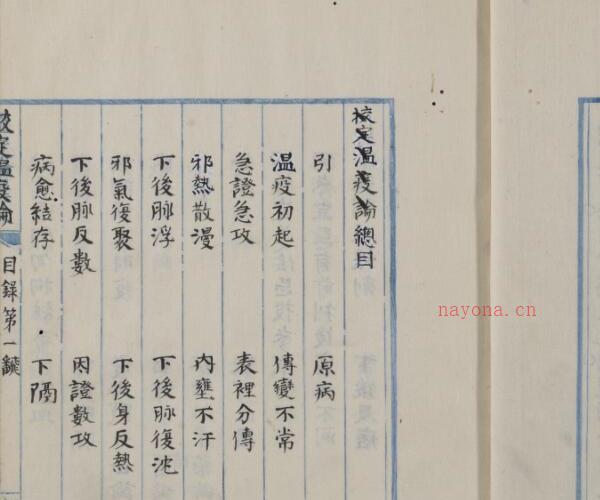 挍定温疫論總目
引 原病
温疫初起 傳變不常
急證急攻 表裡分傳
邪熱散漫 內壅不汗
下後脉浮 下後脉復沈
邪氣復聚 下後身反熱
下後脉反數 因證數攻
病愈結存 下隔
挍定温疫論 目録第一
nayona.cn